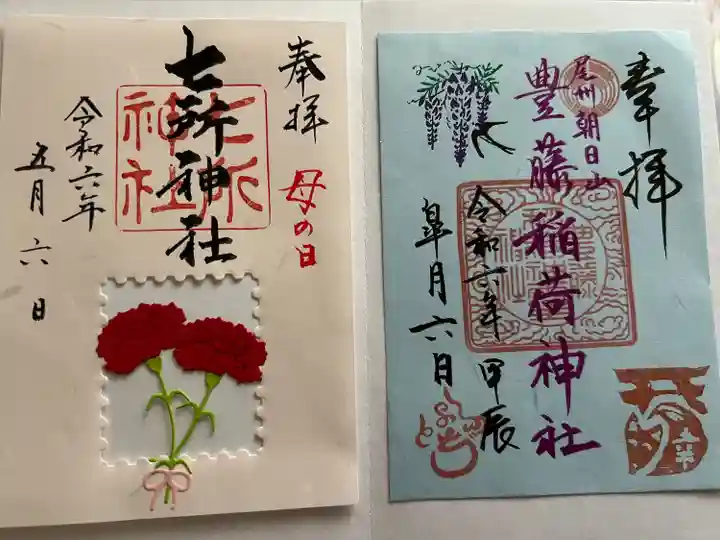 奉拝
母の日
七所神社
七所
神社
令和六年
五月六日
奉拝
尾州朝日山
豊藤稲荷神社
令和六年甲辰
皐月六日